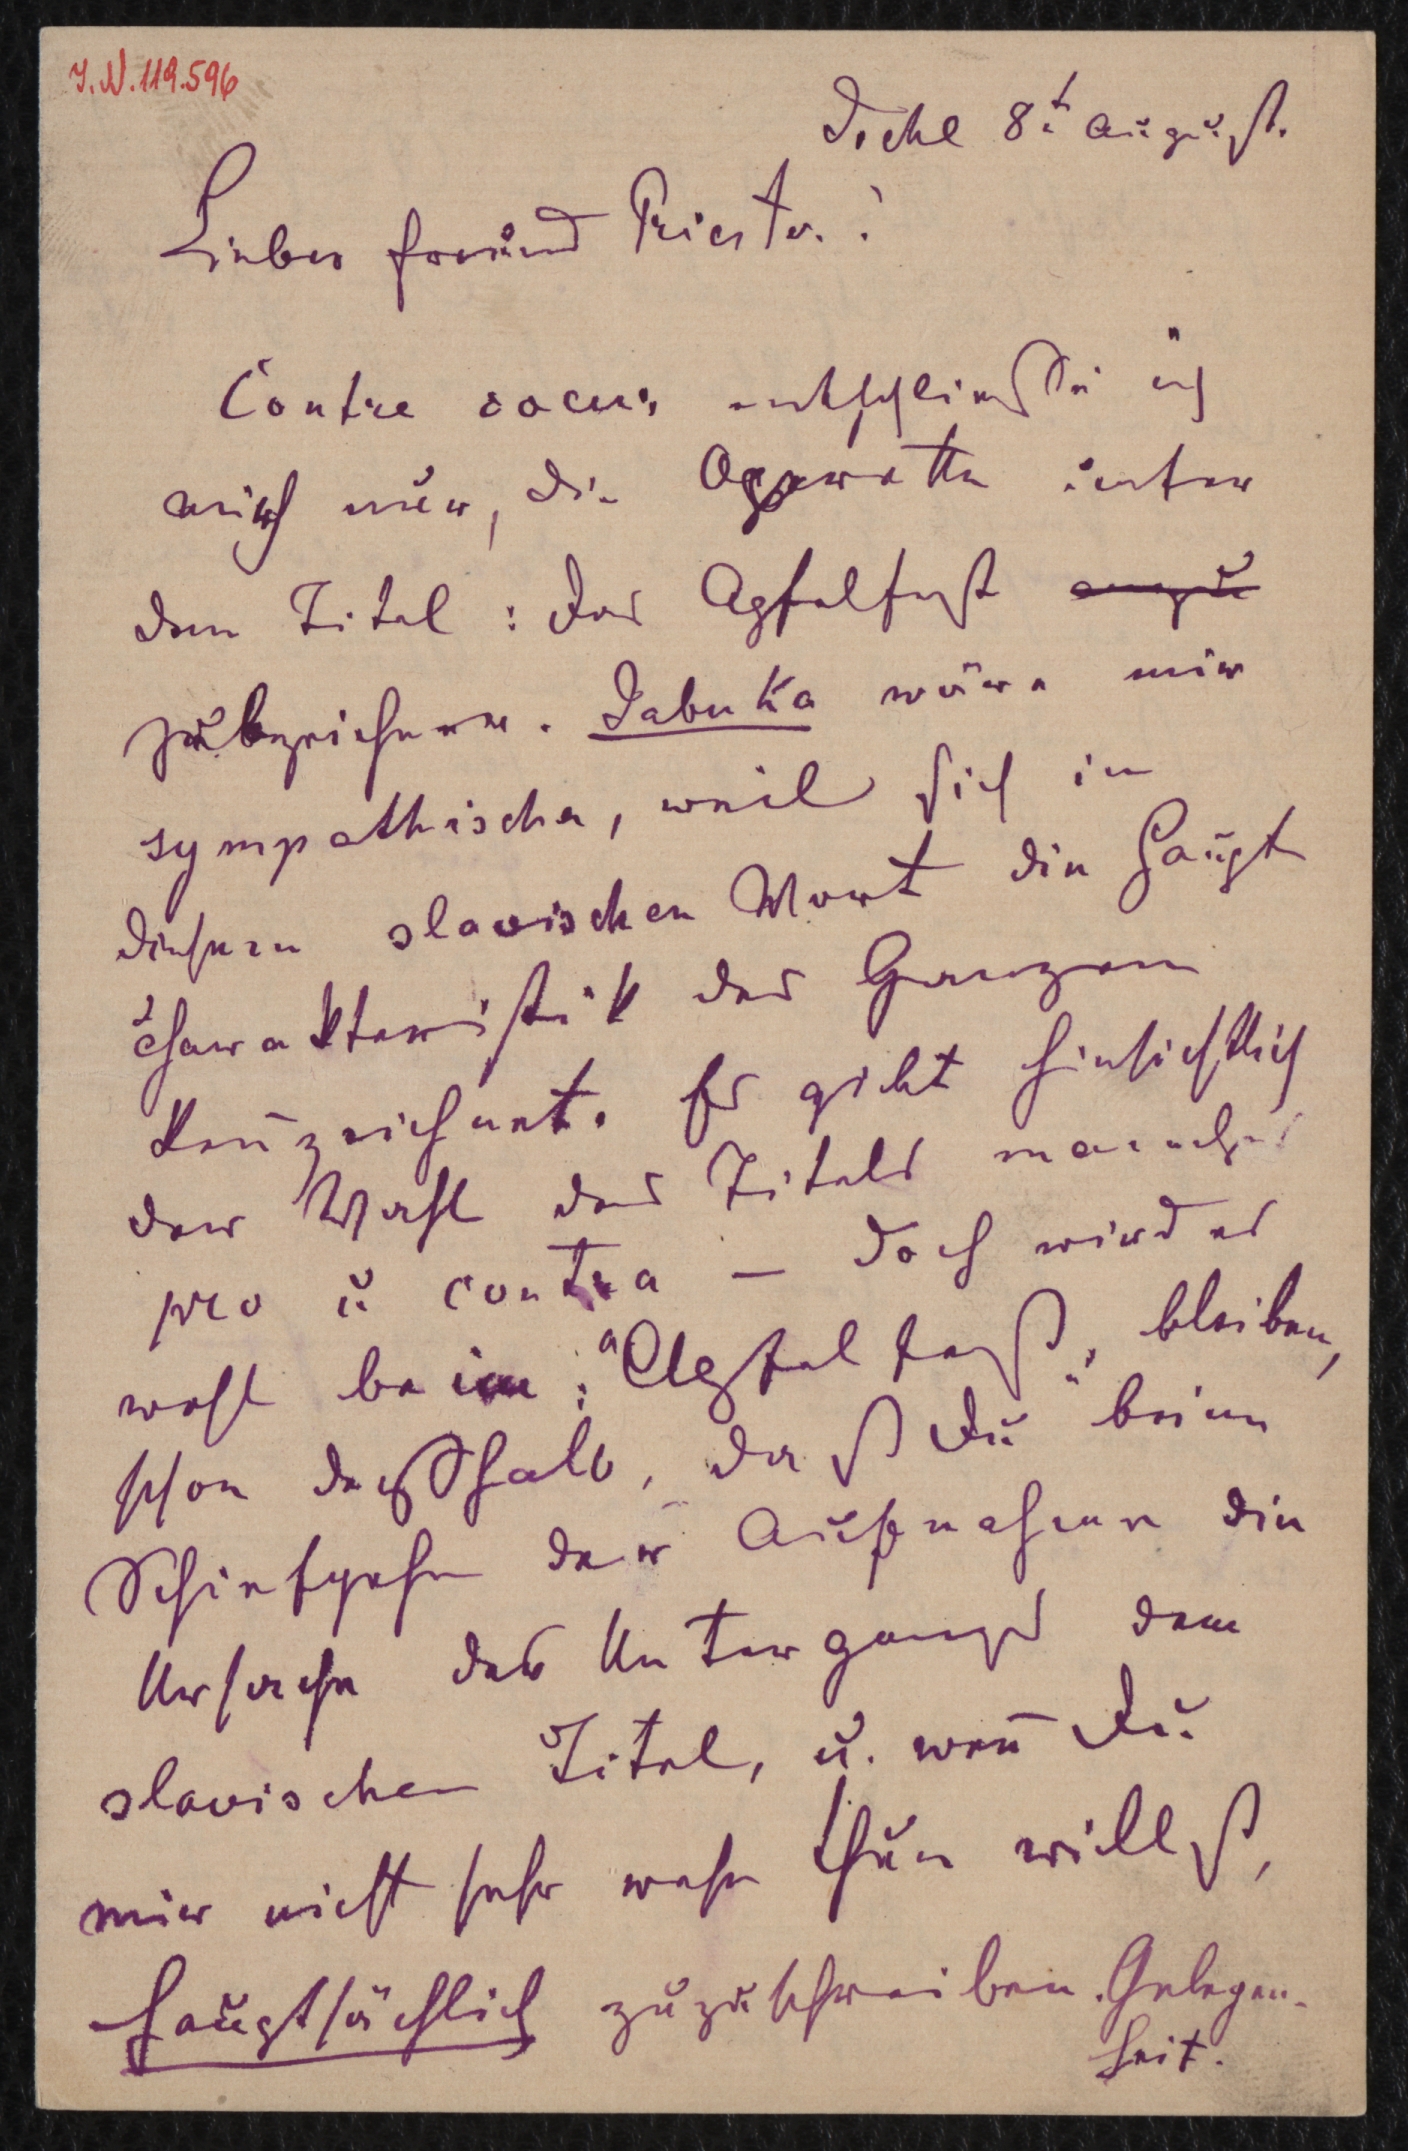 I.N. 119.596
Ischl 8t August.
Lieber Freund Priester!
Contre coeur entschließe ich
mich nur, die Operette unter
dem Titel: das Apfelfest anzu
zubezeichnen. Jabuka wäre mir
sympathischer, weil sich in
diesem slavischen Wort die Haupt
Charakteristik des Ganzen
keñzeichnet. Es giebt hinsichtlich
der Wahl des Titels manches
pro u contra — doch wird es
wohl beim: "Apfelfest" bleiben,
schon deßhalb, daß Du beim
Schiefgehen der Aufnahme die
Ursache des Untergangs dem
slavischen Titel, u. weñ Du
mir nicht sehr wehe thun willst,
hauptsächlich zuzuschreiben Gelegen-
heit.